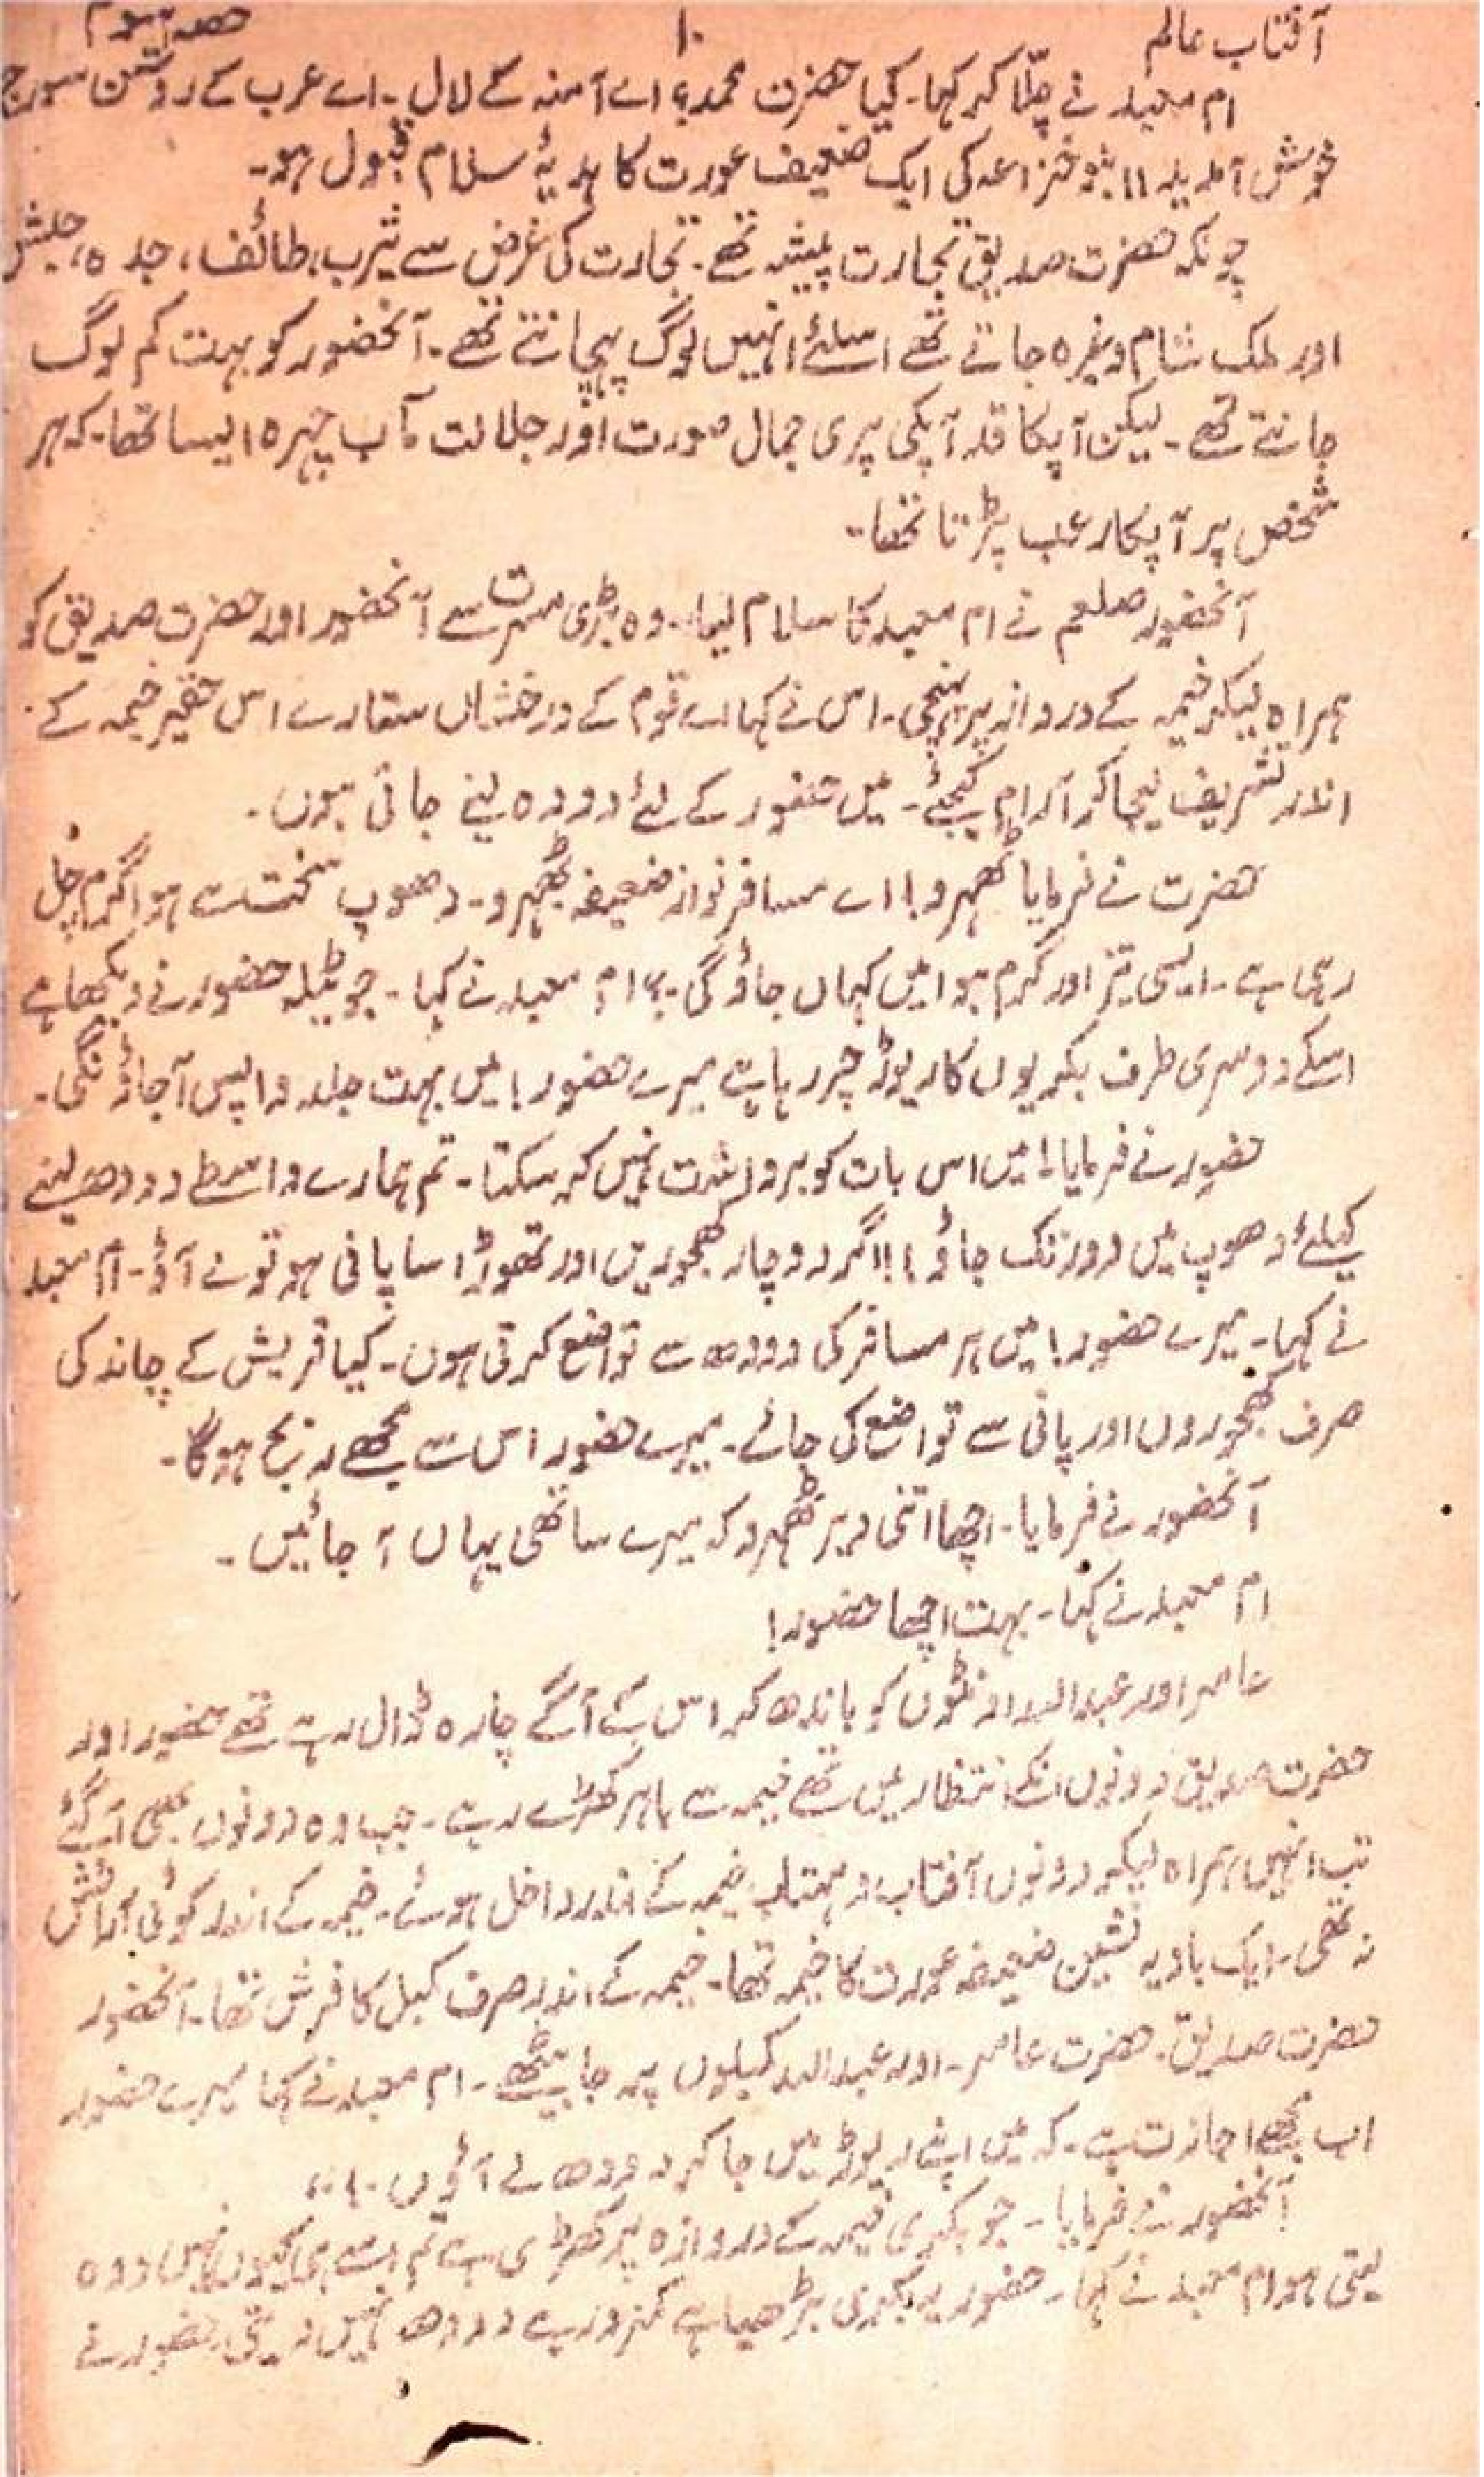 آفتاب عالم ۱۰ حصہ سوم
ام معبد نے چلّا کر کہا۔ کیا حضرت محمد؟ اے آمنہ کے لال۔ اے عرب کے روشن سورج
خوش آمدید!! بنو خزاعہ کی ایک ضعیف عورت کا ہدیۂ سلام قبول ہو۔
چونکہ حضرت صدیق تجارت پیشہ تھے۔ تجارت کی غرض سے یثرب، طائف، جدہ، حبش
اور ملک شام وغیرہ جاتے تھے اسلئے انہیں لوگ پہچانتے تھے۔ آنحضور کو بہت کم لوگ
جانتے تھے۔ لیکن آپکا قد آپکی پری جمال صورت اور جلالت مآب چہرہ ایسا تھا۔ کہ ہر
شخص پر آپکا رعب پڑتا تھا۔
آنحضور صلعم نے ام معبد کا سلام لیا۔ وہ بڑی مسرت سے آنحضور اور حضرت صدیق کو
ہمراہ لیکر خیمہ کے دروازہ پر پہنچی۔ اس نے کہا اے قوم کے درخشاں ستارے اس حقیر خیمہ کے
اندر تشریف لیجا کر آرام کیجئے۔ میں حضور کے لئے دودہ لینے جاتی ہوں۔
حضرت نے فرمایا ٹھہرو! اے مسافر نواز ضعیفہ ٹھہرو۔ دھوپ سخت ہے ہوا گرم چل
رہی ہے۔ ایسی تیز اور گرم ہوا میں کہاں جاؤ گی۔؟ ام معبد نے کہا۔ جو ٹیلہ حضور نے دیکھا ہے
اسکے دوسری طرف بکریوں کا ریوڑ چر رہا ہے میرے حضور! میں بہت جلد واپس آجاؤنگی۔
حضور نے فرمایا! میں اس بات کو برداشت نہیں کر سکتا۔ تم ہمارے واسطے دودھ لینے
کیلئے دھوپ میں دور تک جاؤ!! اگر دو چار کھجوریں اور تھوڑا سا پانی ہو تو لے آؤ۔ ام معبد
نے کہا۔ میرے حضور! میں ہر مسافر کی دودھ سے تواضع کرتی ہوں۔ کیا قریش کے چاند کی
صرف کھجوروں اور پانی سے تواضع کی جائے۔ میرے حضور اس سے مجھے رنج ہوگا۔
آنحضور نے فرمایا۔ اچھا اتنی دیر ٹھہرو کہ میرے ساتھی یہاں آ جائیں۔
ام معبد نے کہا۔ بہت اچھا حضور!
عامر اور عبداللہ اونٹوں کو باندھ کر اس کے آگے چارہ ڈال رہے تھے حضور اور
حضرت صدیق دونوں انکے انتظار میں تھے خیمہ سے باہر کھڑے رہے۔ جب وہ دونوں بھی آ گئے
تب انہیں ہمراہ لیکر دونوں آفتاب و مہتاب خیمہ کے اندر داخل ہوئے۔ خیمہ کے اندر کوئی آرائش
نہ تھی۔ ایک بادیہ نشین ضعیفہ عورت کا خیمہ تھا۔ خیمہ کے اندر صرف کمبل کا فرش تھا۔ آنحضور
حضرت صدیق۔ حضرت عامر۔ اور عبداللہ کمبلوں پر جا بیٹھے۔ ام معبد نے کہا میرے حضور
اب مجھے اجازت ہے۔ کہ میں اپنے ریوڑ میں جا کر دودھ لے آؤں۔
آنحضور نے فرمایا۔ جو بکری خیمہ کے دروازہ پر کھڑی ہے تم اسے ہی کیوں نہیں دوہ
لیتی ہو ام معبد نے کہا۔ حضور یہ بکری بڑھیا ہے کمزور ہے دودھ نہیں دیتی، حضور نے